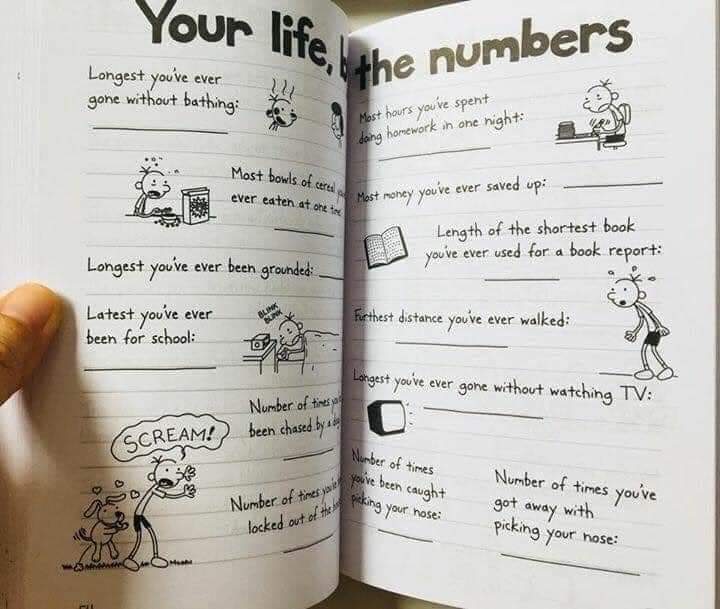 Your life, the numbers
Longest you've ever
gone without bathing:
Most bowls of cereal
ever eaten at one time
Longest you've ever been grounded:
Latest you've ever
been for school:
BLINK
BLINK
Number of times
been chased by a
SCREAM!
Number of times
locked out of the
Most hours you've spent
doing homework in one night:
Most money you've ever saved up:
Length of the shortest book
you've ever used for a book report:
Furthest distance you've ever walked:
Longest you've ever gone without watching TV:
Number of times
you've been caught
picking your nose:
Number of times you've
got away with
picking your nose: